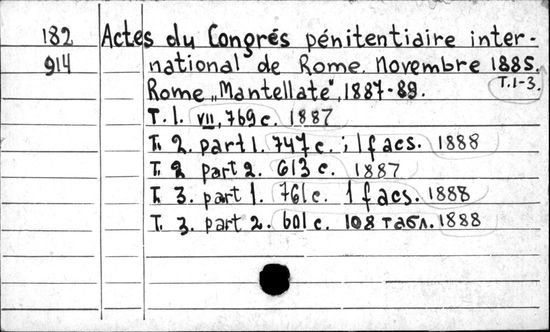 182 Actes du Congrés pénitentiaire inter-
914 national de Rome. Novembre 1885.
Rome „Mantellate“, 1887-89. T.1-3.
T. 1. VII, 769 c. 1887
T. 2. part 1. 747 c. ; 1 facs. 1888
T. 2 part 2. 613 c. 1887
T. 3. part 1. 761 c. 1 facs. 1888
T. 3. part 2. 601 c. 108 табл. 1888